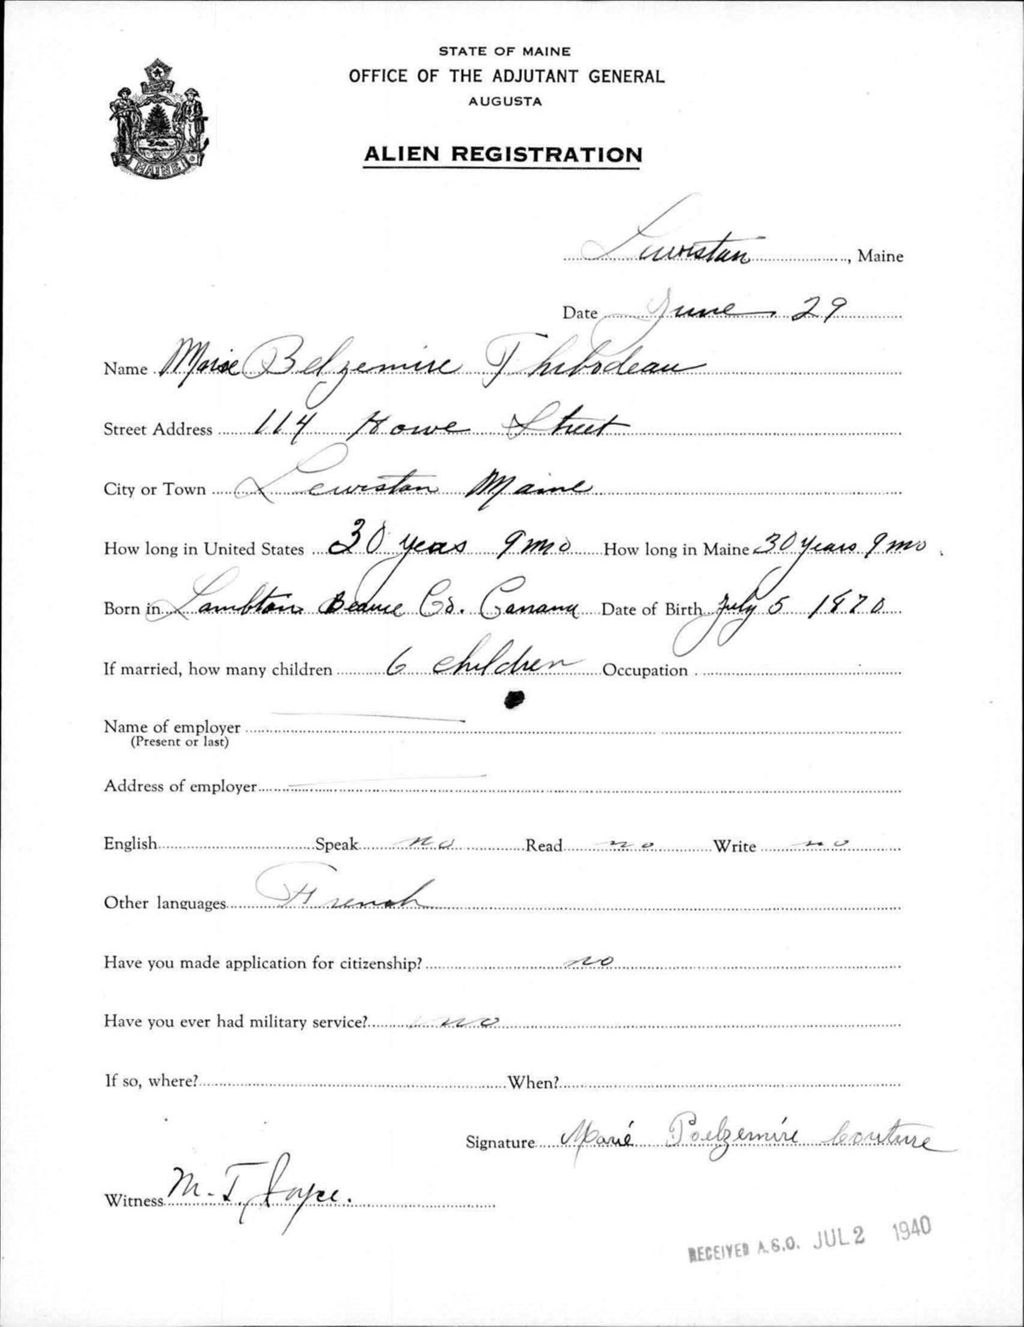 STATE OF MAINE
OFFICE OF THE ADJUTANT GENERAL
AUGUSTA
ALIEN REGISTRATION
MAINE
Lewiston, Maine
Date June 29
Name Marie Belzemire Thibodeau
Street Address 114 Howe Street
City or Town Lewiston Maine
How long in United States 30 years 9 mo How long in Maine 30 years 9 mo.
Born in Lambton Beauce Co. Canana Date of Birth July 5 1870
If married, how many children 6 children Occupation
Name of employer
(Present or last)
Address of employer
English Speak no Read no Write no
Other languages French
Have you made application for citizenship? no
Have you ever had military service? no
If so, where? When?
Signature Marié Belzemire Couture
Witness M. T. Joyce.
RECEIVED A.G.O. JUL 2 1940